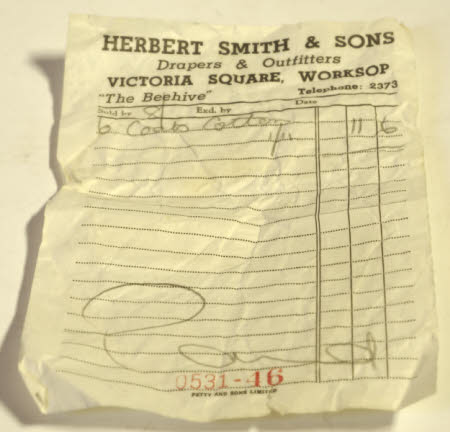 HERBERT SMITH & SONS
Drapers & Outfitters
VICTORIA SQUARE, WORKSOP
"The Beehive" Telephone: 2373
Sold by 8 Exd. by Date
6 Coats Cotton 1/11 11 6
0531-46
PETTY AND SONS LIMITED